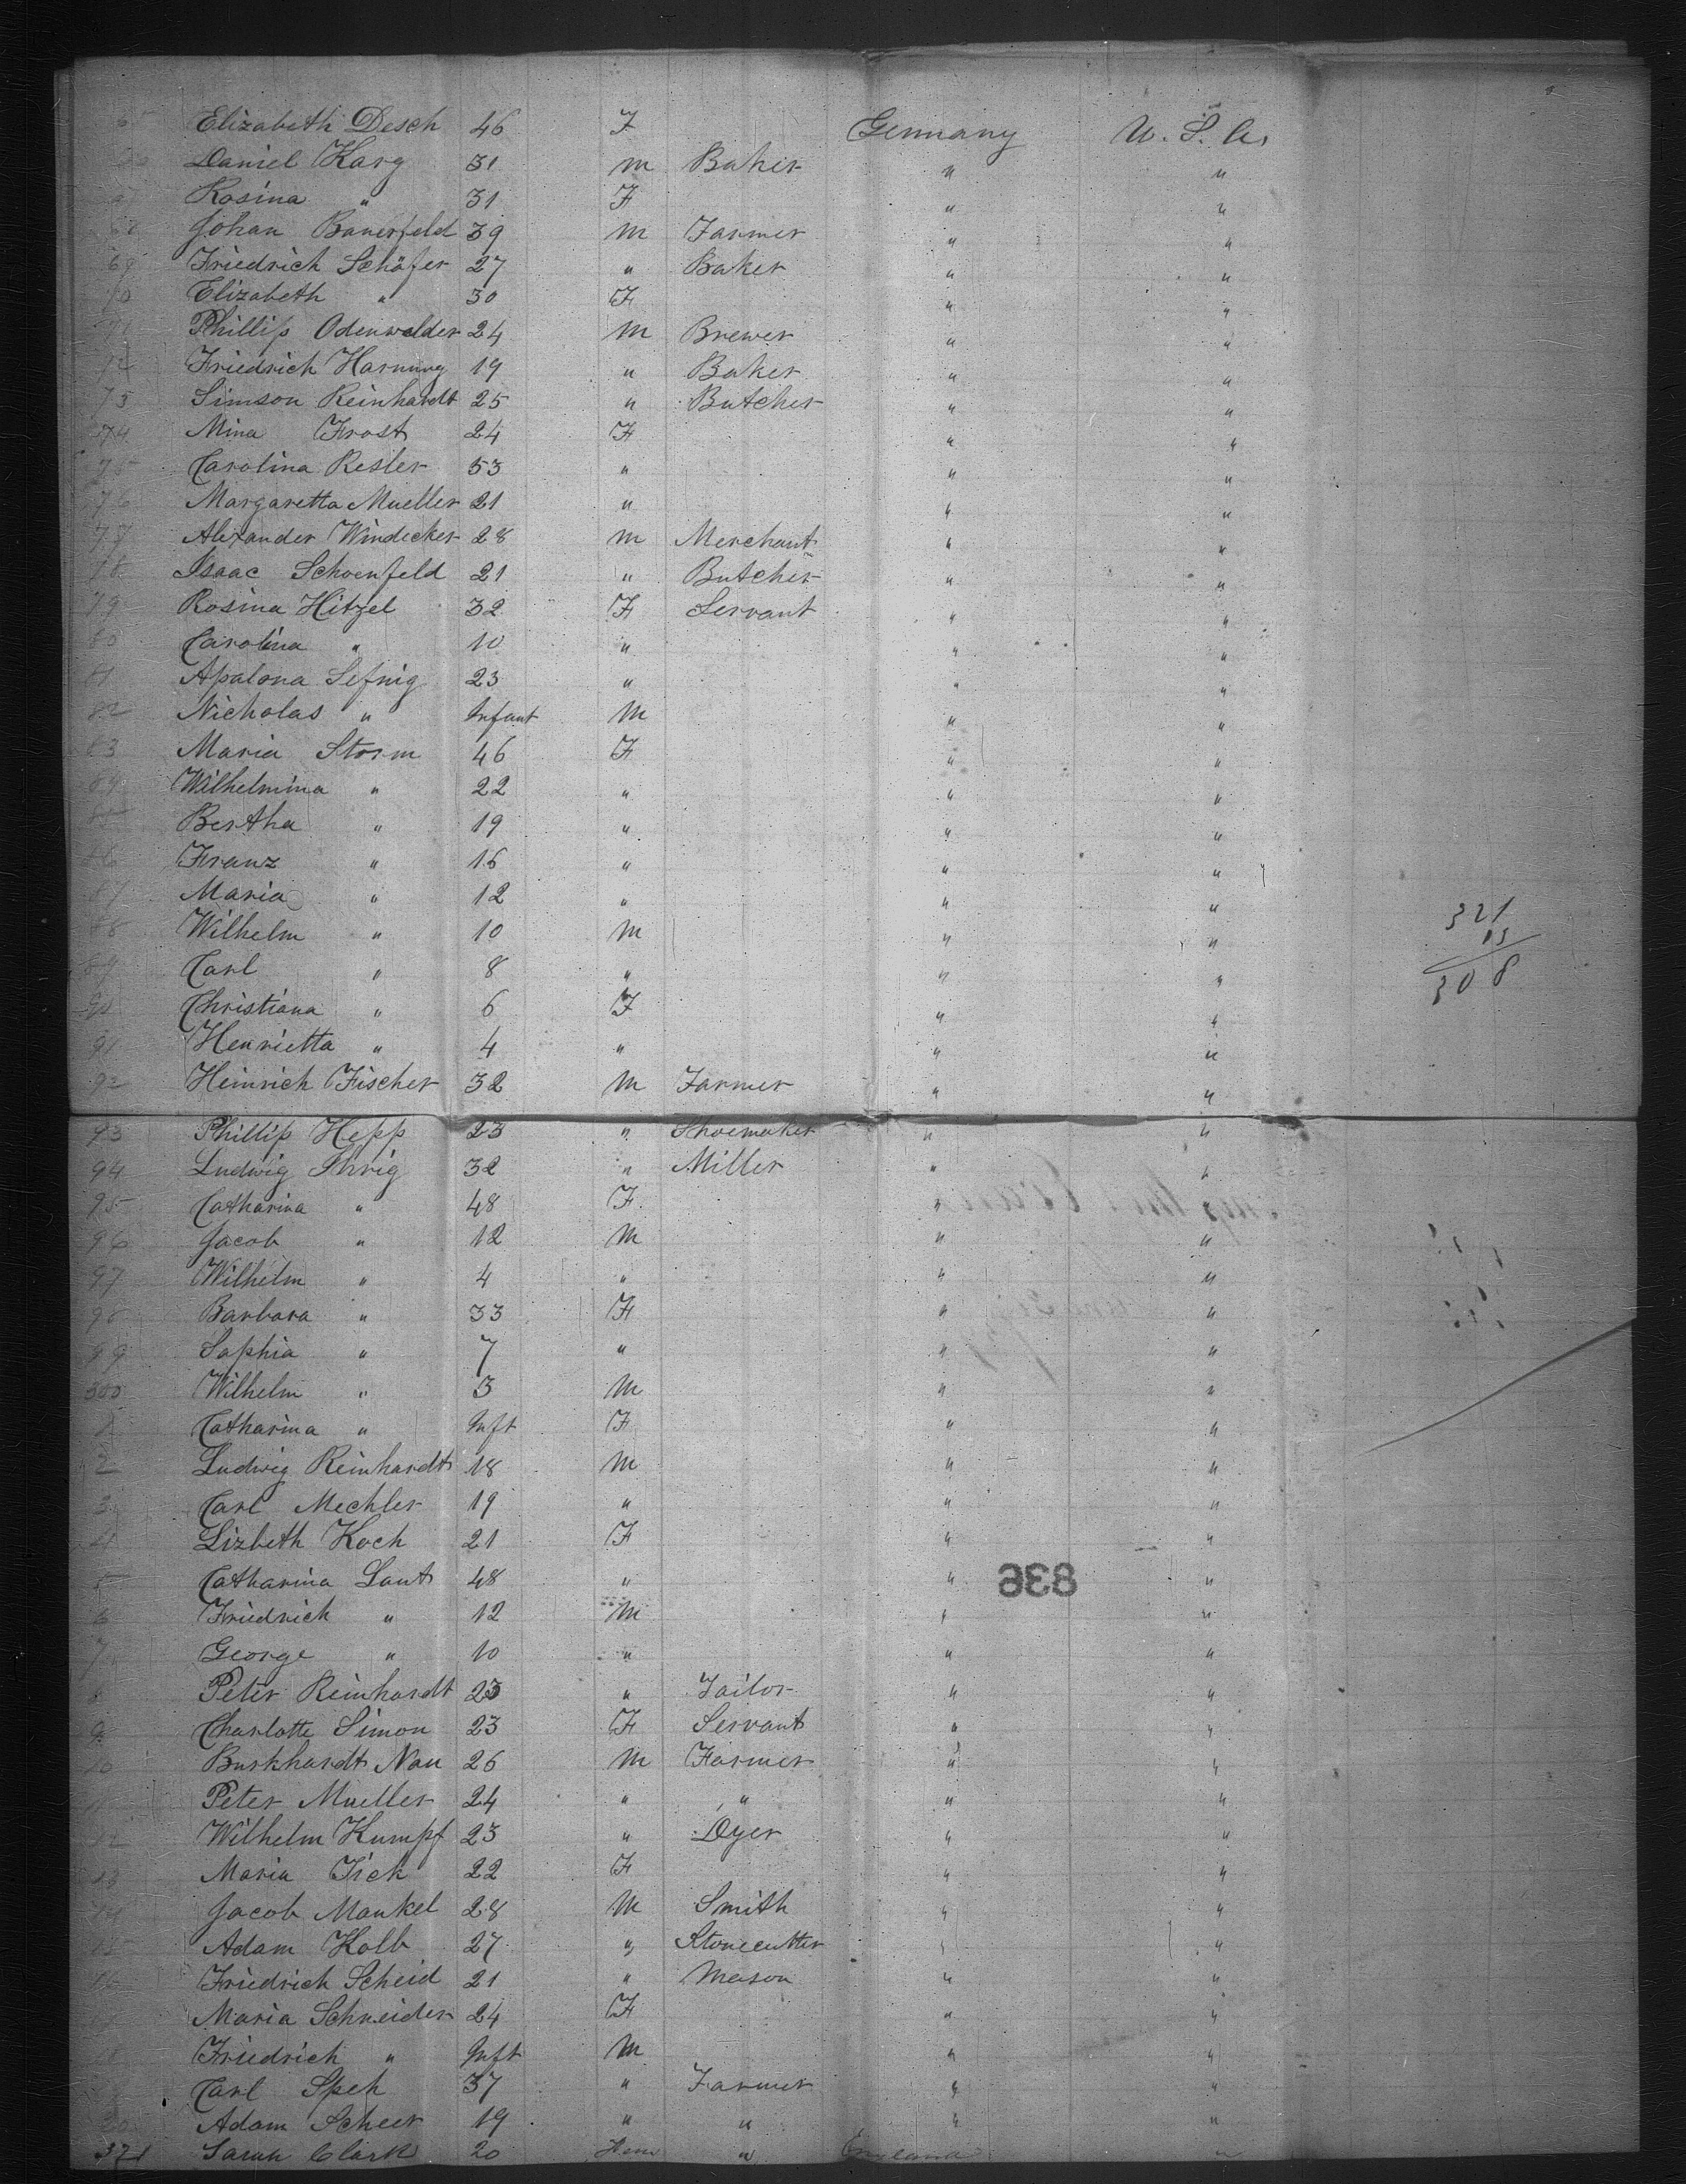 65 Elizabeth Desch 46 F Germany U. S. A.
66 Daniel Karg 31 m Baker " "
67 Rosina " 31 F " "
68 Johan Bauerfeld 39 m Farmer " "
69 Friedrich Schäfer 27 " Baker " "
70 Elizabeth " 30 F " "
71 Phillip Odenwalder 24 m Brewer " "
72 Friedrich Harnung 19 " Baker " "
73 Simson Reinhardt 25 " Butcher " "
74 Mina Frost 24 F " "
75 Carolina Resler 53 " " "
76 Margaretta Mueller 21 " " "
77 Alexander Windecker 28 m Merchant " "
78 Isaac Schoenfeld 21 " Butcher " "
79 Rosina Hitzel 32 F Servant " "
80 Carolina " 10 " " "
81 Apalona Sefnig 23 " " "
82 Nicholas " Infant M " "
83 Maria Storm 46 F " "
84 Wilhelmina " 22 " " "
85 Bertha " 19 " " "
86 Franz " 16 " " "
87 Maria " 12 " " "
88 Wilhelm " 10 m " "
89 Carl " 8 " " "
90 Christiana " 6 F " "
91 Henrietta " 4 " " "
92 Heinrich Fischer 32 m Farmer " "
321
13
308
93 Phillip Hepp 23 " Shoemaker " "
94 Ludwig Ihrig 32 " Miller " "
95 Catharina " 48 F " "
96 Jacob " 12 m " "
97 Wilhelm " 4 " " "
98 Barbara " 33 F " "
99 Sophia " 7 " " "
300 Wilhelm " 3 m " "
1 Catharina " Inft F " "
2 Ludwig Reinhardt 18 m " "
3 Carl Mechler 19 " " "
4 Lizbeth Koch 21 F " "
5 Catharina Laut 48 " " "
836
6 Friedrich " 12 m " "
7 George " 10 " " "
8 Peter Reinhardt 23 " Tailor " "
9 Charlotte Simon 23 F Servant " "
10 Burkhardt Nau 26 m Farmer " "
11 Peter Mueller 24 " " " "
12 Wilhelm Kumpf 23 " Dyer " "
13 Maria Fick 22 F " "
14 Jacob Mankel 28 m Smith " "
15 Adam Kolb 27 " Stonecutter " "
16 Friedrich Scheid 21 " Mason " "
Maria Schneider 24 F " "
18 Friedrich " Inft m " "
Carl Speh 37 " Farmer " "
20 Adam Scheer 19 " " " "
321 Sarah Clark 20 Fem " England "